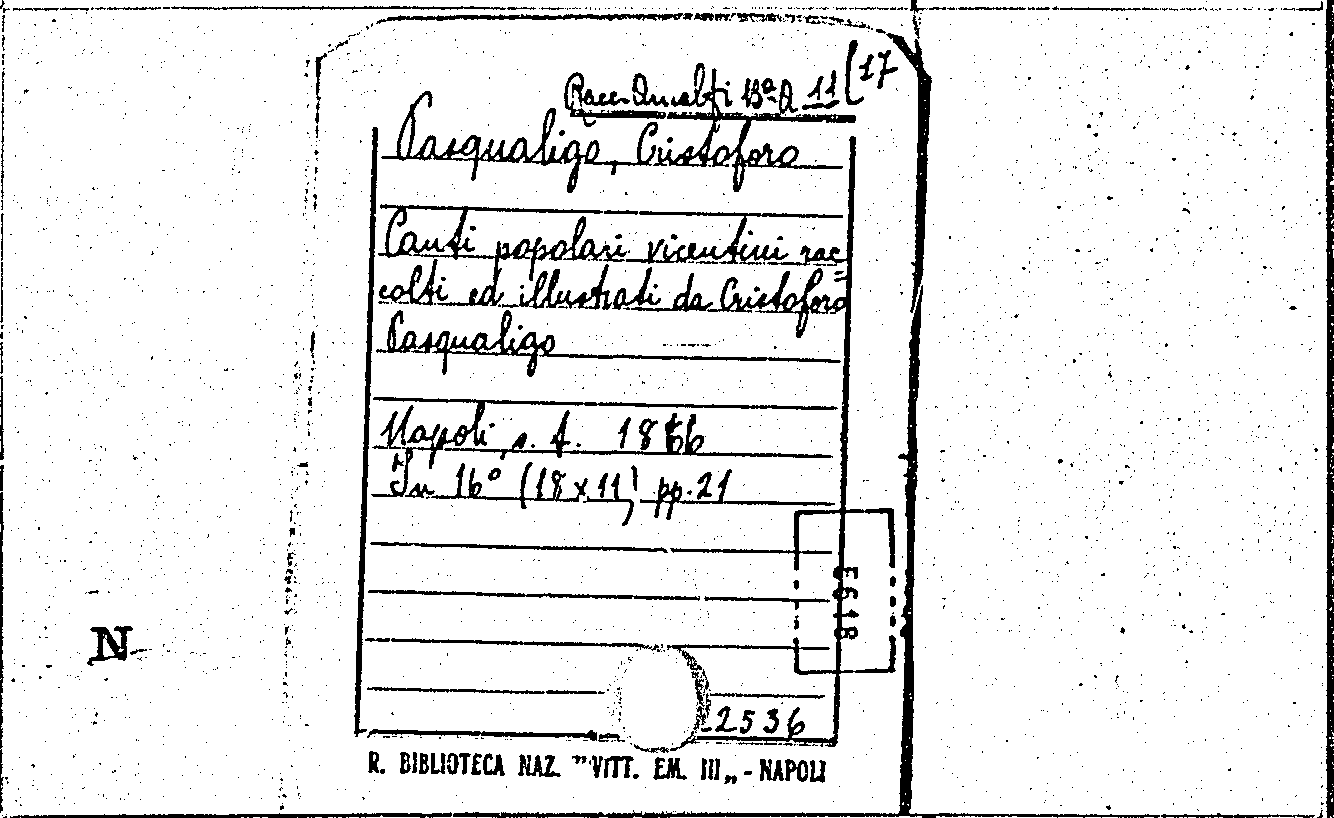 Racc. Amalfi Bª A 11 (17
Pasqualigo, Cristoforo
Canti popolari vicentini rac=
colti ed illustrati da Cristoforo
Pasqualigo
Napoli, s. t. 1866
In 16° (18 x 11) pp. 21
N
2536
R. BIBLIOTECA NAZ. "VITT. EM. III„ - NAPOLI